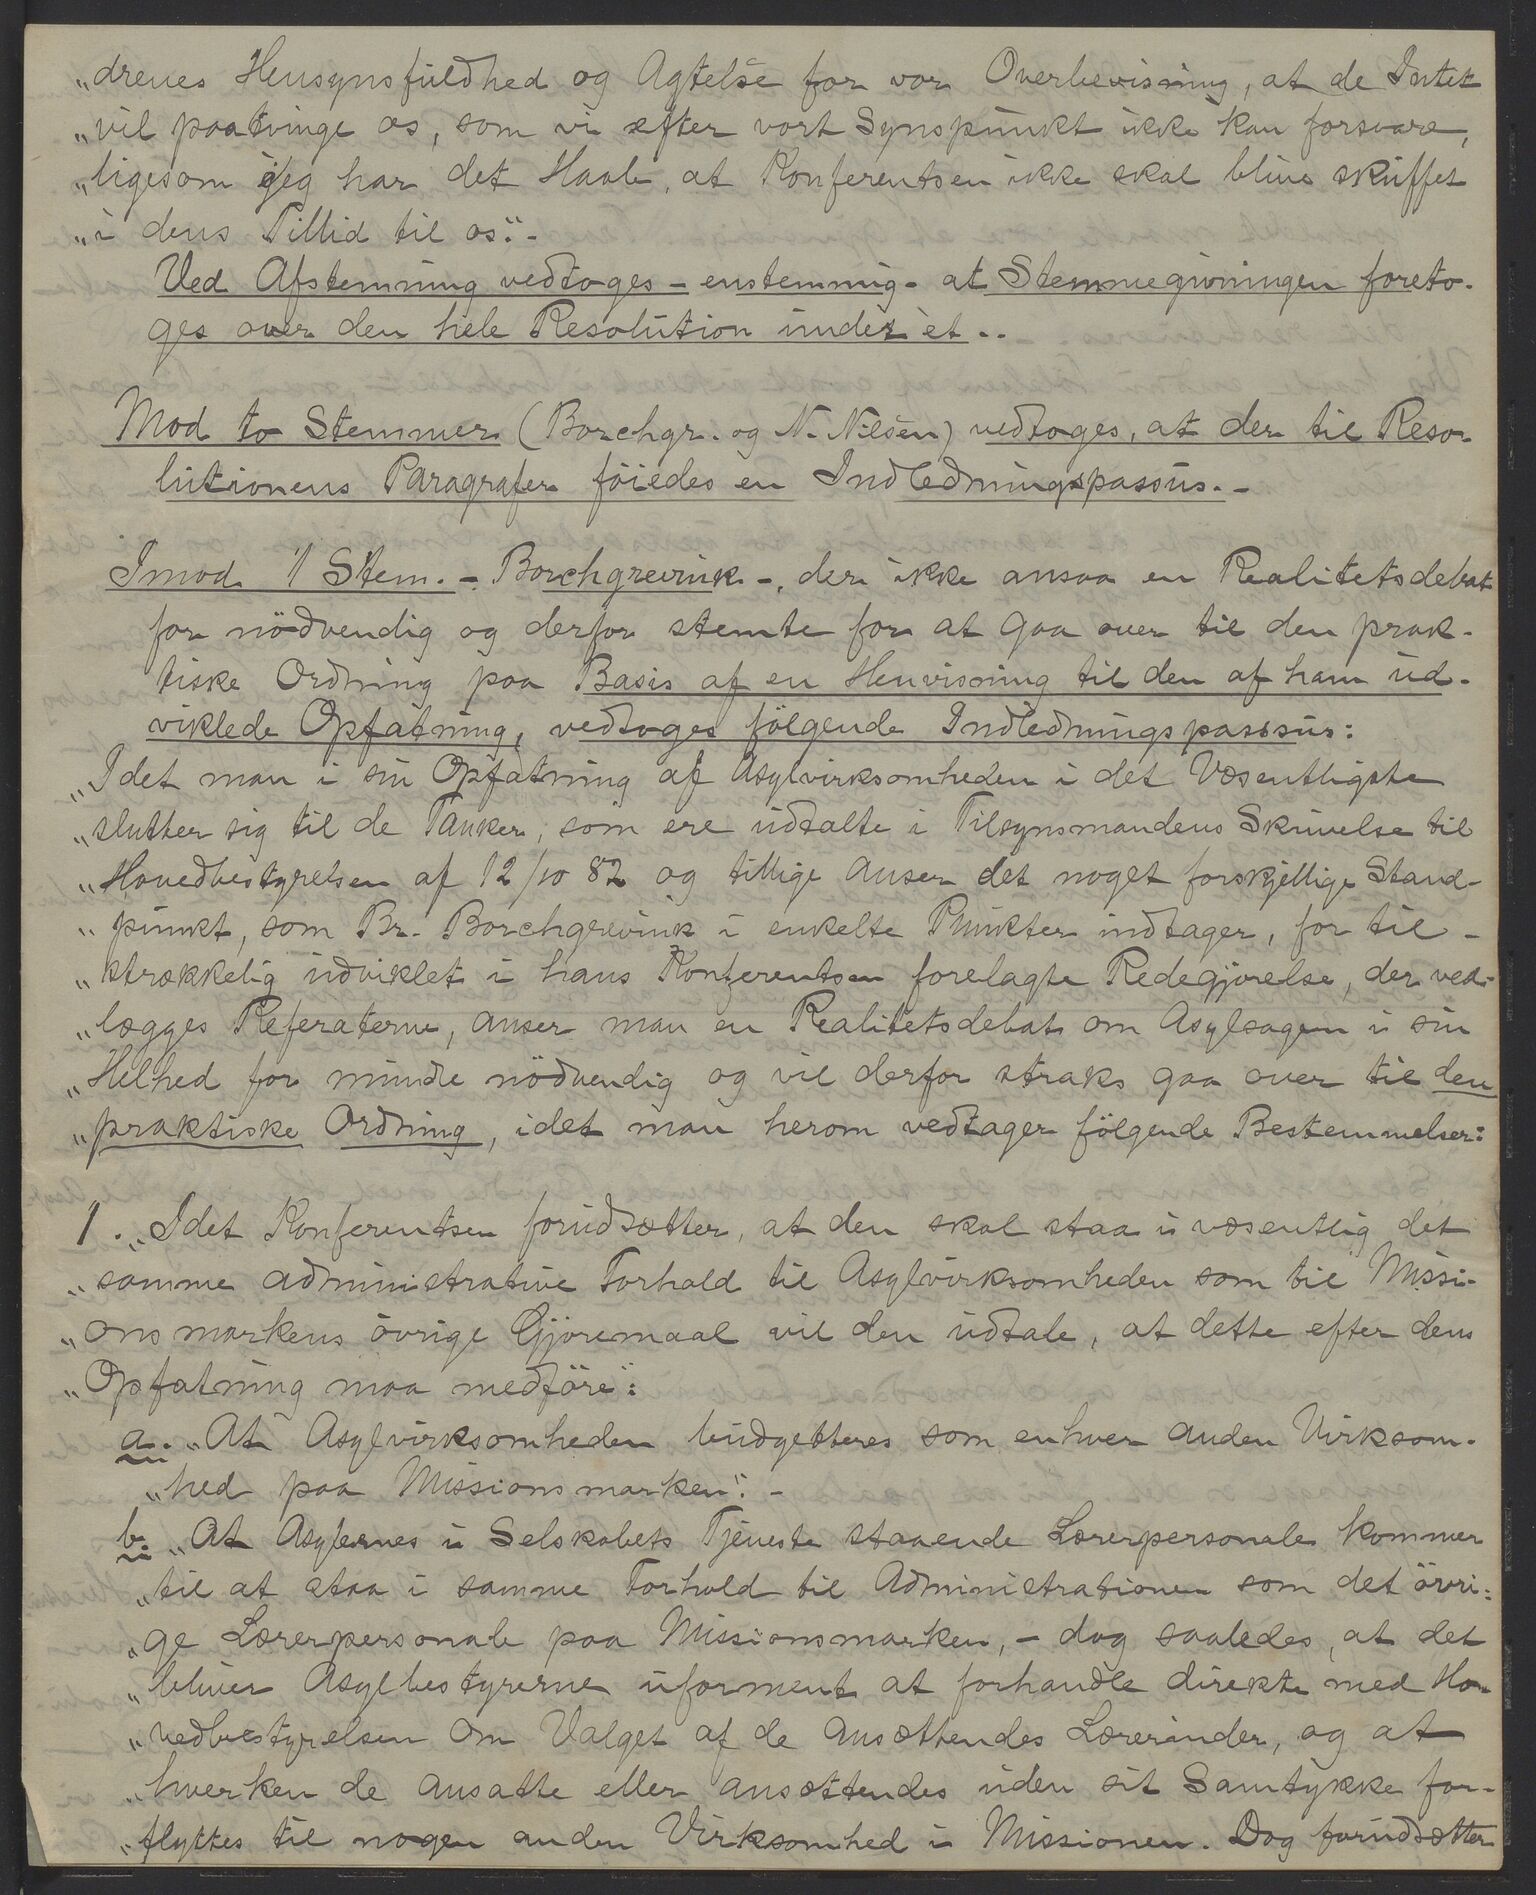 „drenes Hensynsfuldhed og Agtelse for vor Overbevisning, at de Intet
„vil paatvinge os, som vi efter vort Synspunkt ikke kan forsvare,
„ligesom jeg har det Haab, at Konferentsen ikke skal blive skuffet
„i dens Tillid til os“. -
Ved Afstemning vedtoges - enstemmig - at Stemmegivningen foreto-
ges over den hele Resolution under et. -
Mod to Stemmer (Borchgr. og N. Nilsen) vedtoges, at der til Reso-
lutionens Paragrafer föiedes en Indledningspassus. -
Imod 1 Stem. - Borchgrevink -, der ikke ansaa en Realitetsdebat
for nödvendig og derfor stemte for at gaa over til den prak-
tiske Ordning paa Basis af en Henvisning til den af ham ud-
viklede Opfatning, vedtoges fölgende Indledningspasssus:
„Idet man i sin Opfatning af Asylvirksomheden i det Væsentligste
„slutter sig til de Tanker, som ere udtalte i Tilsynsmandens Skrivelse til
„Hovedbestyrelsen af 12/10 82 og tillige anser det noget forskjellige Stand-
„punkt, som Br. Borchgrevink i enkelte Punkter indtager, for til-
„strækkelig udviklet i hans Konferentsen forelagte Redegjørelse, der ved-
„lægges Referaterne, anser man en Realitetsdebat om Asylsagen i sin
„Helhed for mindre nödvendig og vil derfor straks gaa over til den
„praktiske Ordning, idet man herom vedtager fölgende Bestemmelser:
1. „Idet Konferentsen forudsætter, at den skal staa i væsentlig det
„samme administrative Forhold til Asylvirksomheden som til Missi-
„onsmarkens övrige Gjöremaal vil den udtale, at dette efter dens
„Opfatning maa medföre“:
a. „At Asylvirksomheden budgetteres som enhver anden Virksom-
„hed paa Missionsmarken“. -
b. „At Asylernes i Selskabets Tjeneste staaende Lærerpersonale kommer
„til at staa i samme Forhold til Administrationen som det övri-
„ge Lærerpersonale paa Missionsmarken, - dog saaledes, at det
„bliver Asylbestyrerne uforment at forhandle direkte med Ho-
„vedbestyrelsen om Valget af de ansættendes Lærerinder, og at
„hverken de ansatte eller ansættendes uden sit Samtykke for-
„flyttes til nogen anden Virksomhed i Missionen. Dog forudsætter